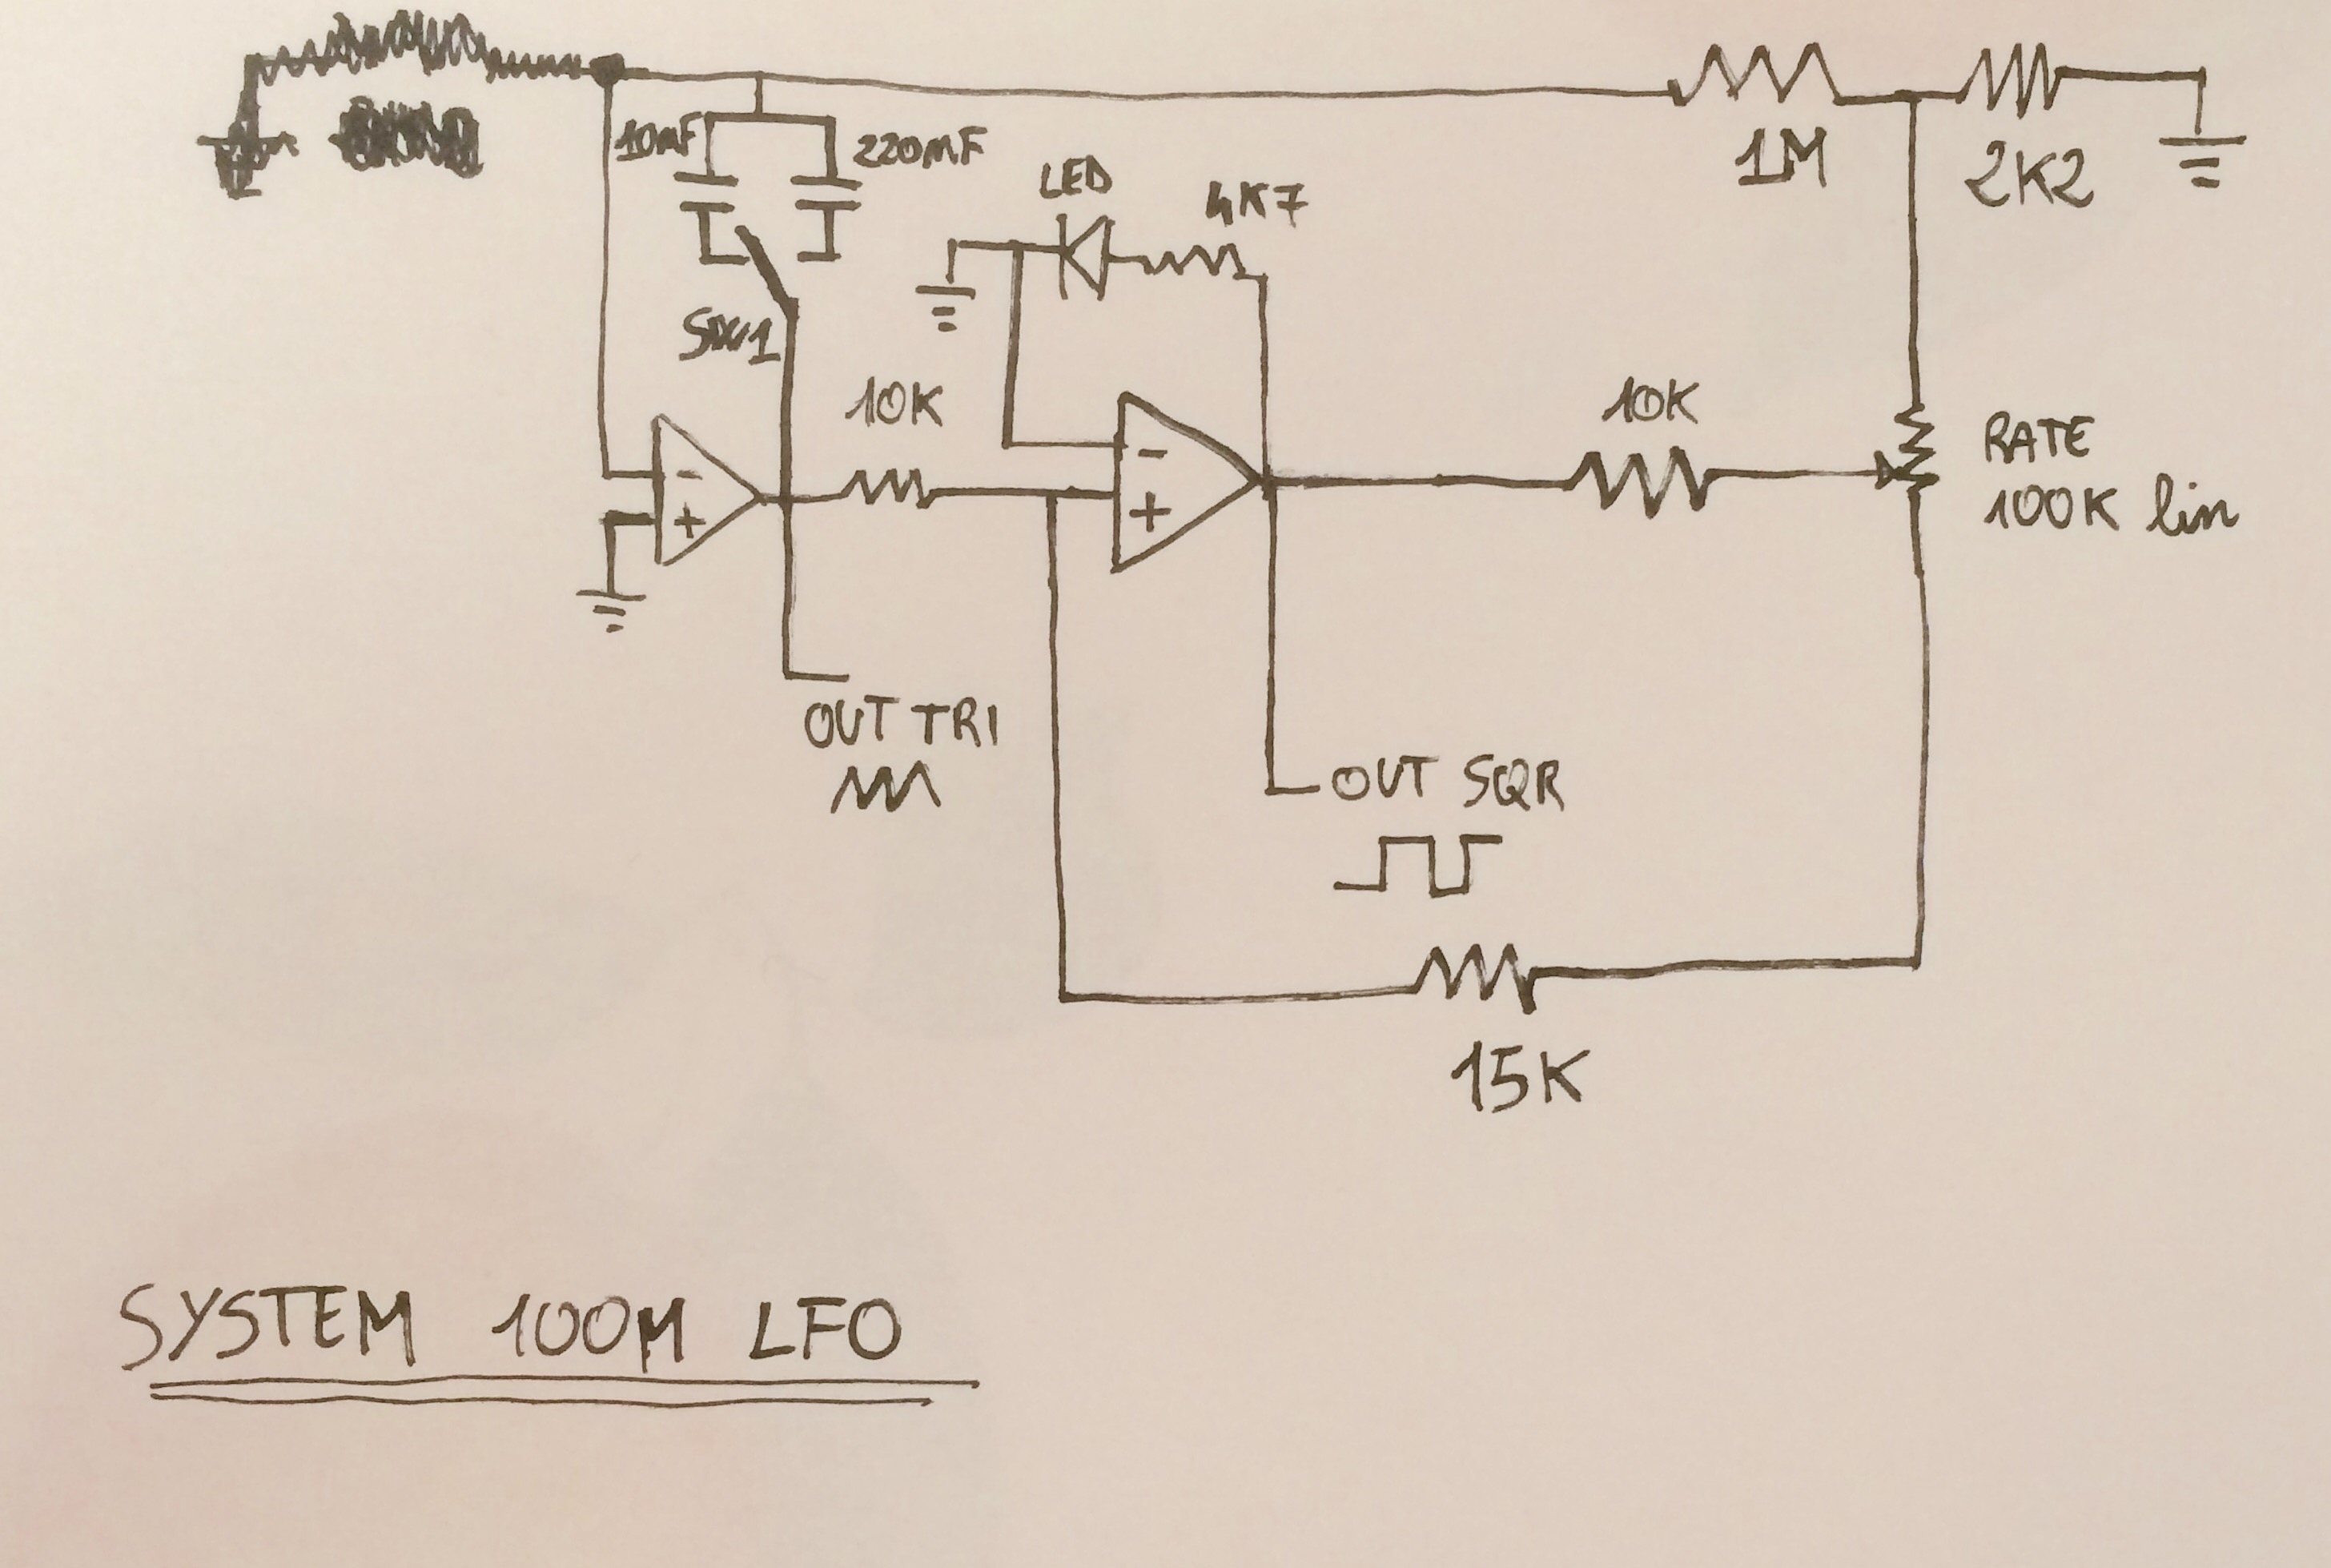 10nF
220nF
1M
2K2
LED
4K7
SW1
10K
10K
RATE
100K lin
-
+
-
+
OUT TRI
OUT SQR
15K
SYSTEM 100M LFO